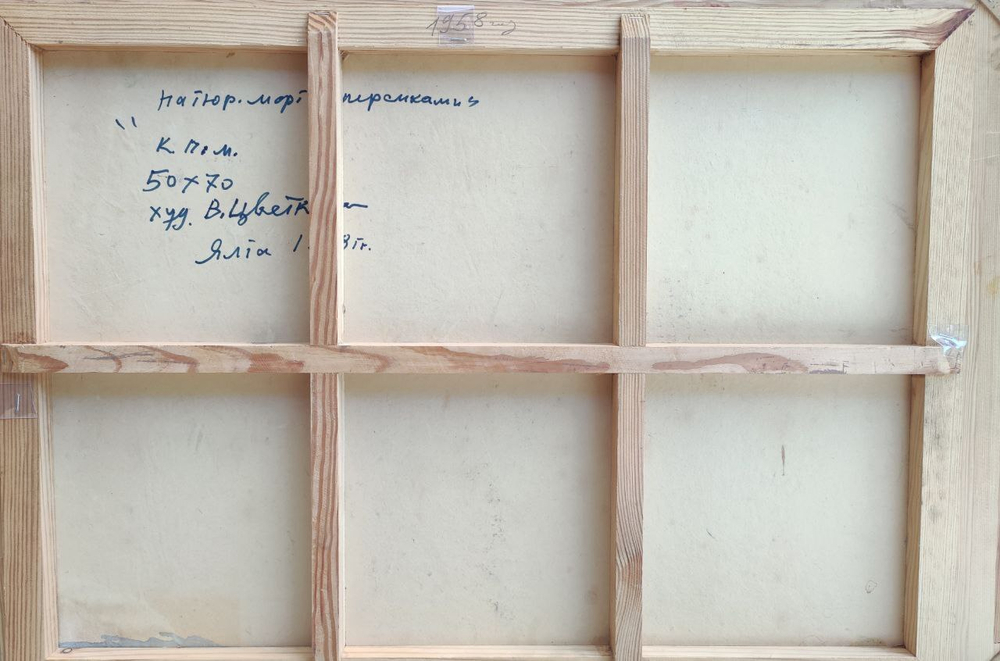 1958
Натюр.морт персиками
"
к. п. м.
50х70
худ. В.Цветк
Ялта 1 8г.